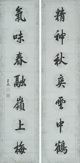 精神秋爽雲中鶴
氣味春融嶺上梅